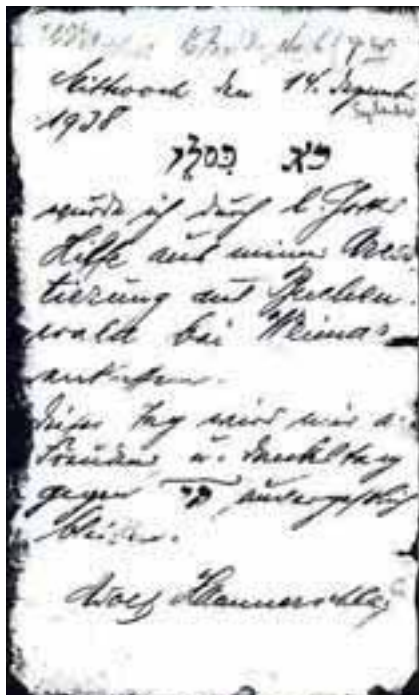 Mittwoch den 14. Dezemb.
1938
כא כסלו
wurde ich durch l. Gottes
Hilfe aus meiner Arres
tierung aus Buchen
wald bei Weimar
entlassen.
dieser Tag wird mir a.
Freuden u. Dankeltag
gegen unvergeßlich
bleiben.
Adolf Hammerschlag